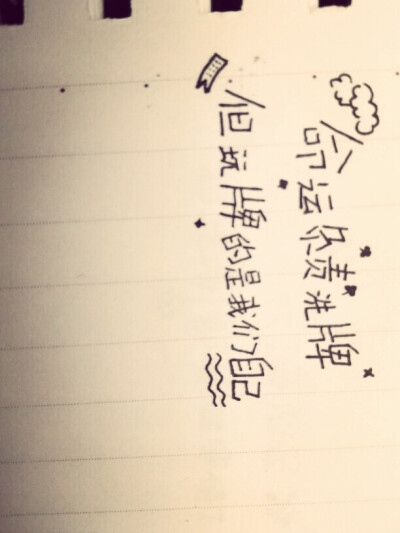 命运负责洗牌
但玩牌的是我们自己